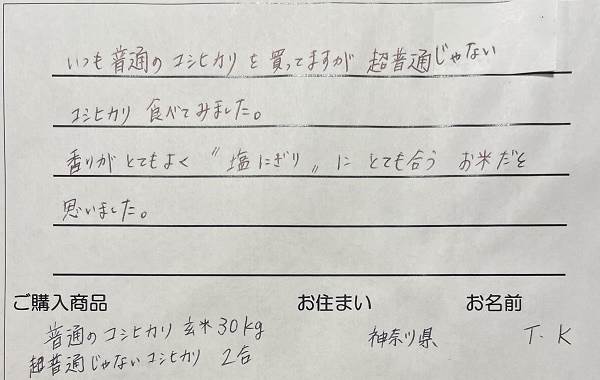 いつも普通のコシヒカリを買ってますが 超普通じゃない
コシヒカリ 食べてみました。
香りがとてもよく〝塩にぎり〟に とても合う お米だと
思いました。
ご購入商品 お住まい お名前
普通のコシヒカリ 玄米30kg 神奈川県 T.K
超普通じゃないコシヒカリ 2合